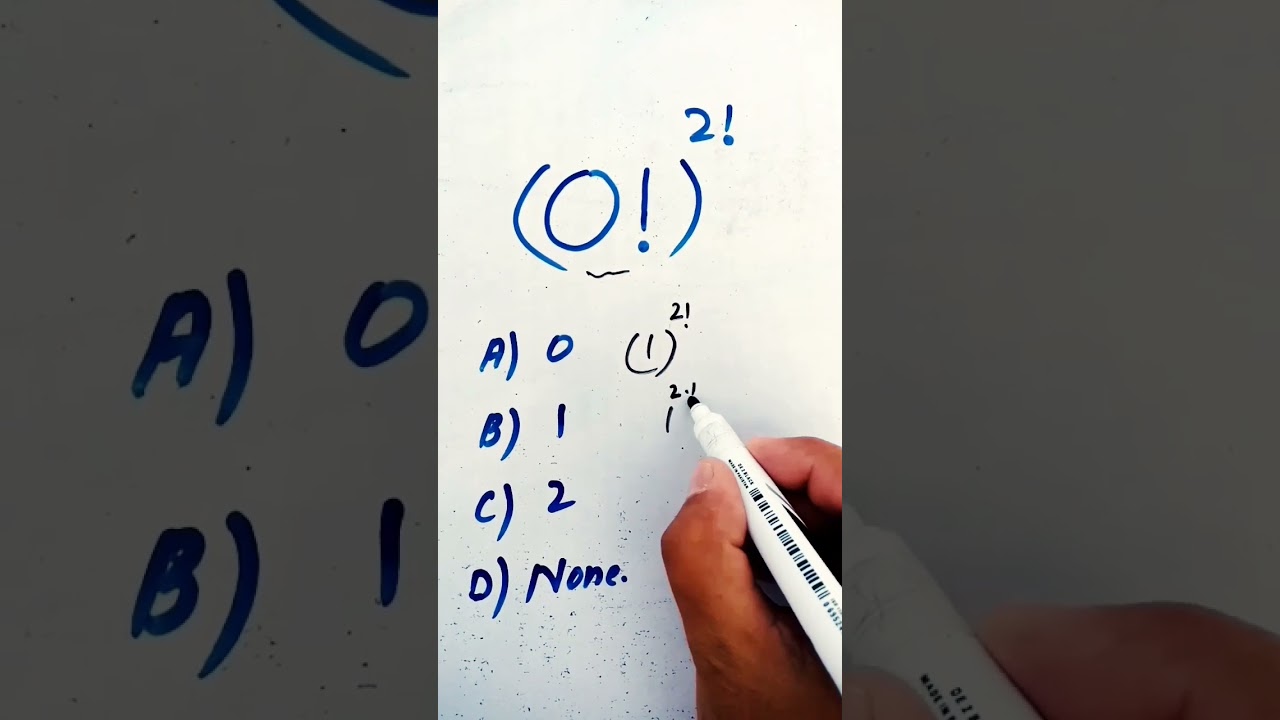 (0!)^2!
A) 0 (1)^2!
B) 1 1^2·1
C) 2
D) None.